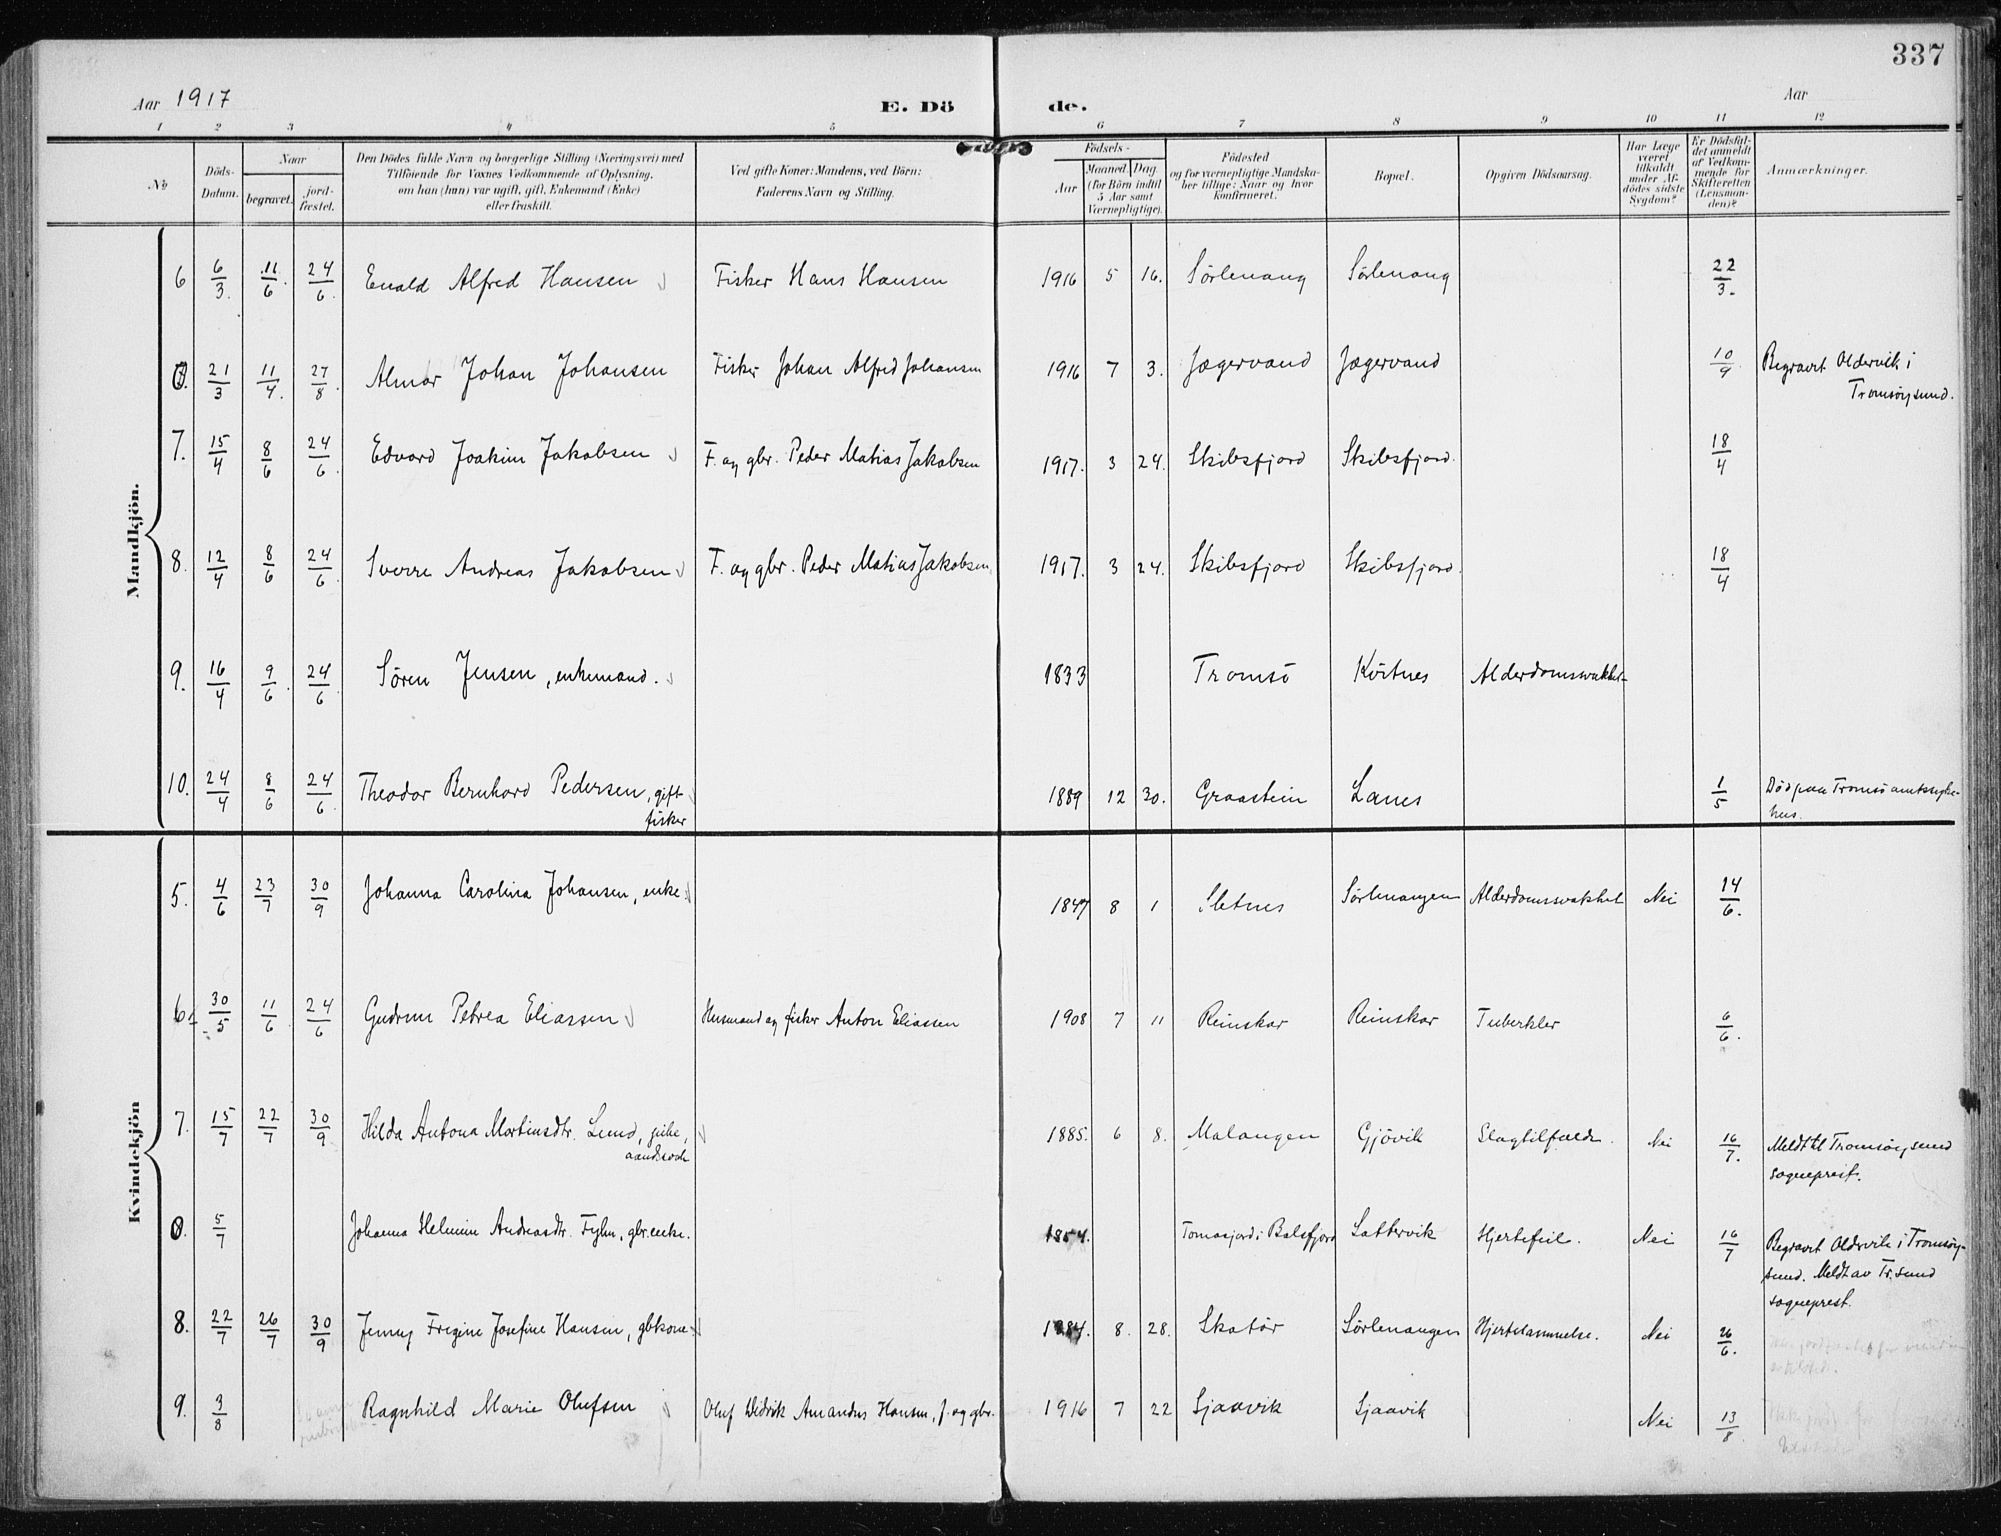 337
Aar 1917 E. Dö de. Aar
1 2 3 4 5 6 7 8 9 10 11 12
No
Döds-Datum.
Naar
begravet.
jord-fæstet.
Den Dödes fulde Navn og borgerlige Stilling (Næringsvei) med
Tilföiende for Voxnes Vedkommende af Oplysning,
om han (hun) var ugift, gift, Enkemand (Enke)
eller fraskilt.
Ved gifte Koner: Mandens, ved Börn:
Faderens Navn og Stilling.
Födsels-
Aar
Maaned. Dag.
(for Börn indtil
5 Aar samt
Værnepligtige).
Födested
og for værnepligtige Mandska-
ber tillige: Naar og hvor
konfirmeret.
Bopæl.
Opgiven Dödsaarsag.
Har Læge
været
tilkaldt
under Af-
dödes sidste
Sygdom?
Er Dödsfal-
det anmeldt
af Vedkom-
mende for
Skifteretten
(Lensman-
den)?
Anmærkninger.
Mandkjön.
6 6/3. 11/6 24/6. Enald Alfred Hansen Fisker Hans Hansen 1916 5 16. Sörlenang Sörlenang 22/3.
0. 21/3 11/4. 27/8. Almar Johan Johansen Fisker Johan Alfred Johansen 1916 7 3. Jægervand Jægervand 10/4 Begravet Oldervik i
Tromsöysund.
7. 15/4 8/6 24/6. Edvard Joakim Jakobsen F. og gbr. Peder Matias Jakobsen 1917. 3 24. Skibsfjord Skibsfjord. 18/4
8. 12/4 8/6 24/6. Sverre Andreas Jakobsen F. og gbr. Peder Matias Jakobsen 1917. 3 24. Skibsfjord Skibsfjord. 18/4
9. 16/4 9/6. 24/6 Sören Jensen, enkemand. 1833 Tromsö Körtnes Alderdomssvakhet
10. 24/4 8/6 24/6. Theodor Bernhard Pedersen, gift
fisker 1889 12 30. Graastein Lanes 1/5 Död paa Tromsö amtssyke-
hus.
Kvindekjön
5. 4/6 23/7 30/9 Johanna Carolina Johansen, enke. 1847 8 1 Sletnes Sörlenangen Alderdomssvakhet Nei 14/6.
6. 30/5 11/6 24/6 Gudrun Petrea Eliassen Husmand og fisker Anton Eliassen 1908 7 11 Reinskar Reinskar Tuberkler 6/6.
7. 15/7 22/7 30/9 Hilda Antona Martinsdtr. Lund, pike,
aandssvak 1885. 6 8. Malangen Gjövik Slagtilfælde. Nei 16/7. Meldt til Tromsöysund
sogneprest.
0. 5/7 Johanna Helmine Andreasdtr. Fyhn, gbr.enke. 1854. Tomasjord i Balsfjord Lattervik Hjertefeil. Nei 16/7 Begravet Oldervik i Tromsöy-
sund. Meldt av Tr.sund
sogneprest.
8. 22/7 26/7 30/9 Jenny Fregine Josefine Hansen, gbkone 1884. 8. 28. Skatör Sörlenangen Hjertelammelse. Nei 26/6.
9. 3/8 Ragnhild Marie Olufsen Oluf Didrik Amandus Hansen, f. og gbr. 1916 7 22 Sjaavik Sjaavik Nei 13/8